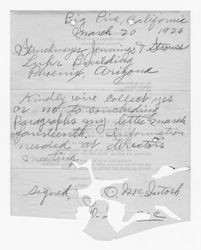 Big Pine, California
March 20 1926
Struckmeyer Jennings & Strauss
Luhrs Building
Phoenix Arizona
Kindly wire collect yes
or no to concluding
Paragraphs my letter March
fourteenth. Information
needed at directors
meeting
Signed O. McIntosh